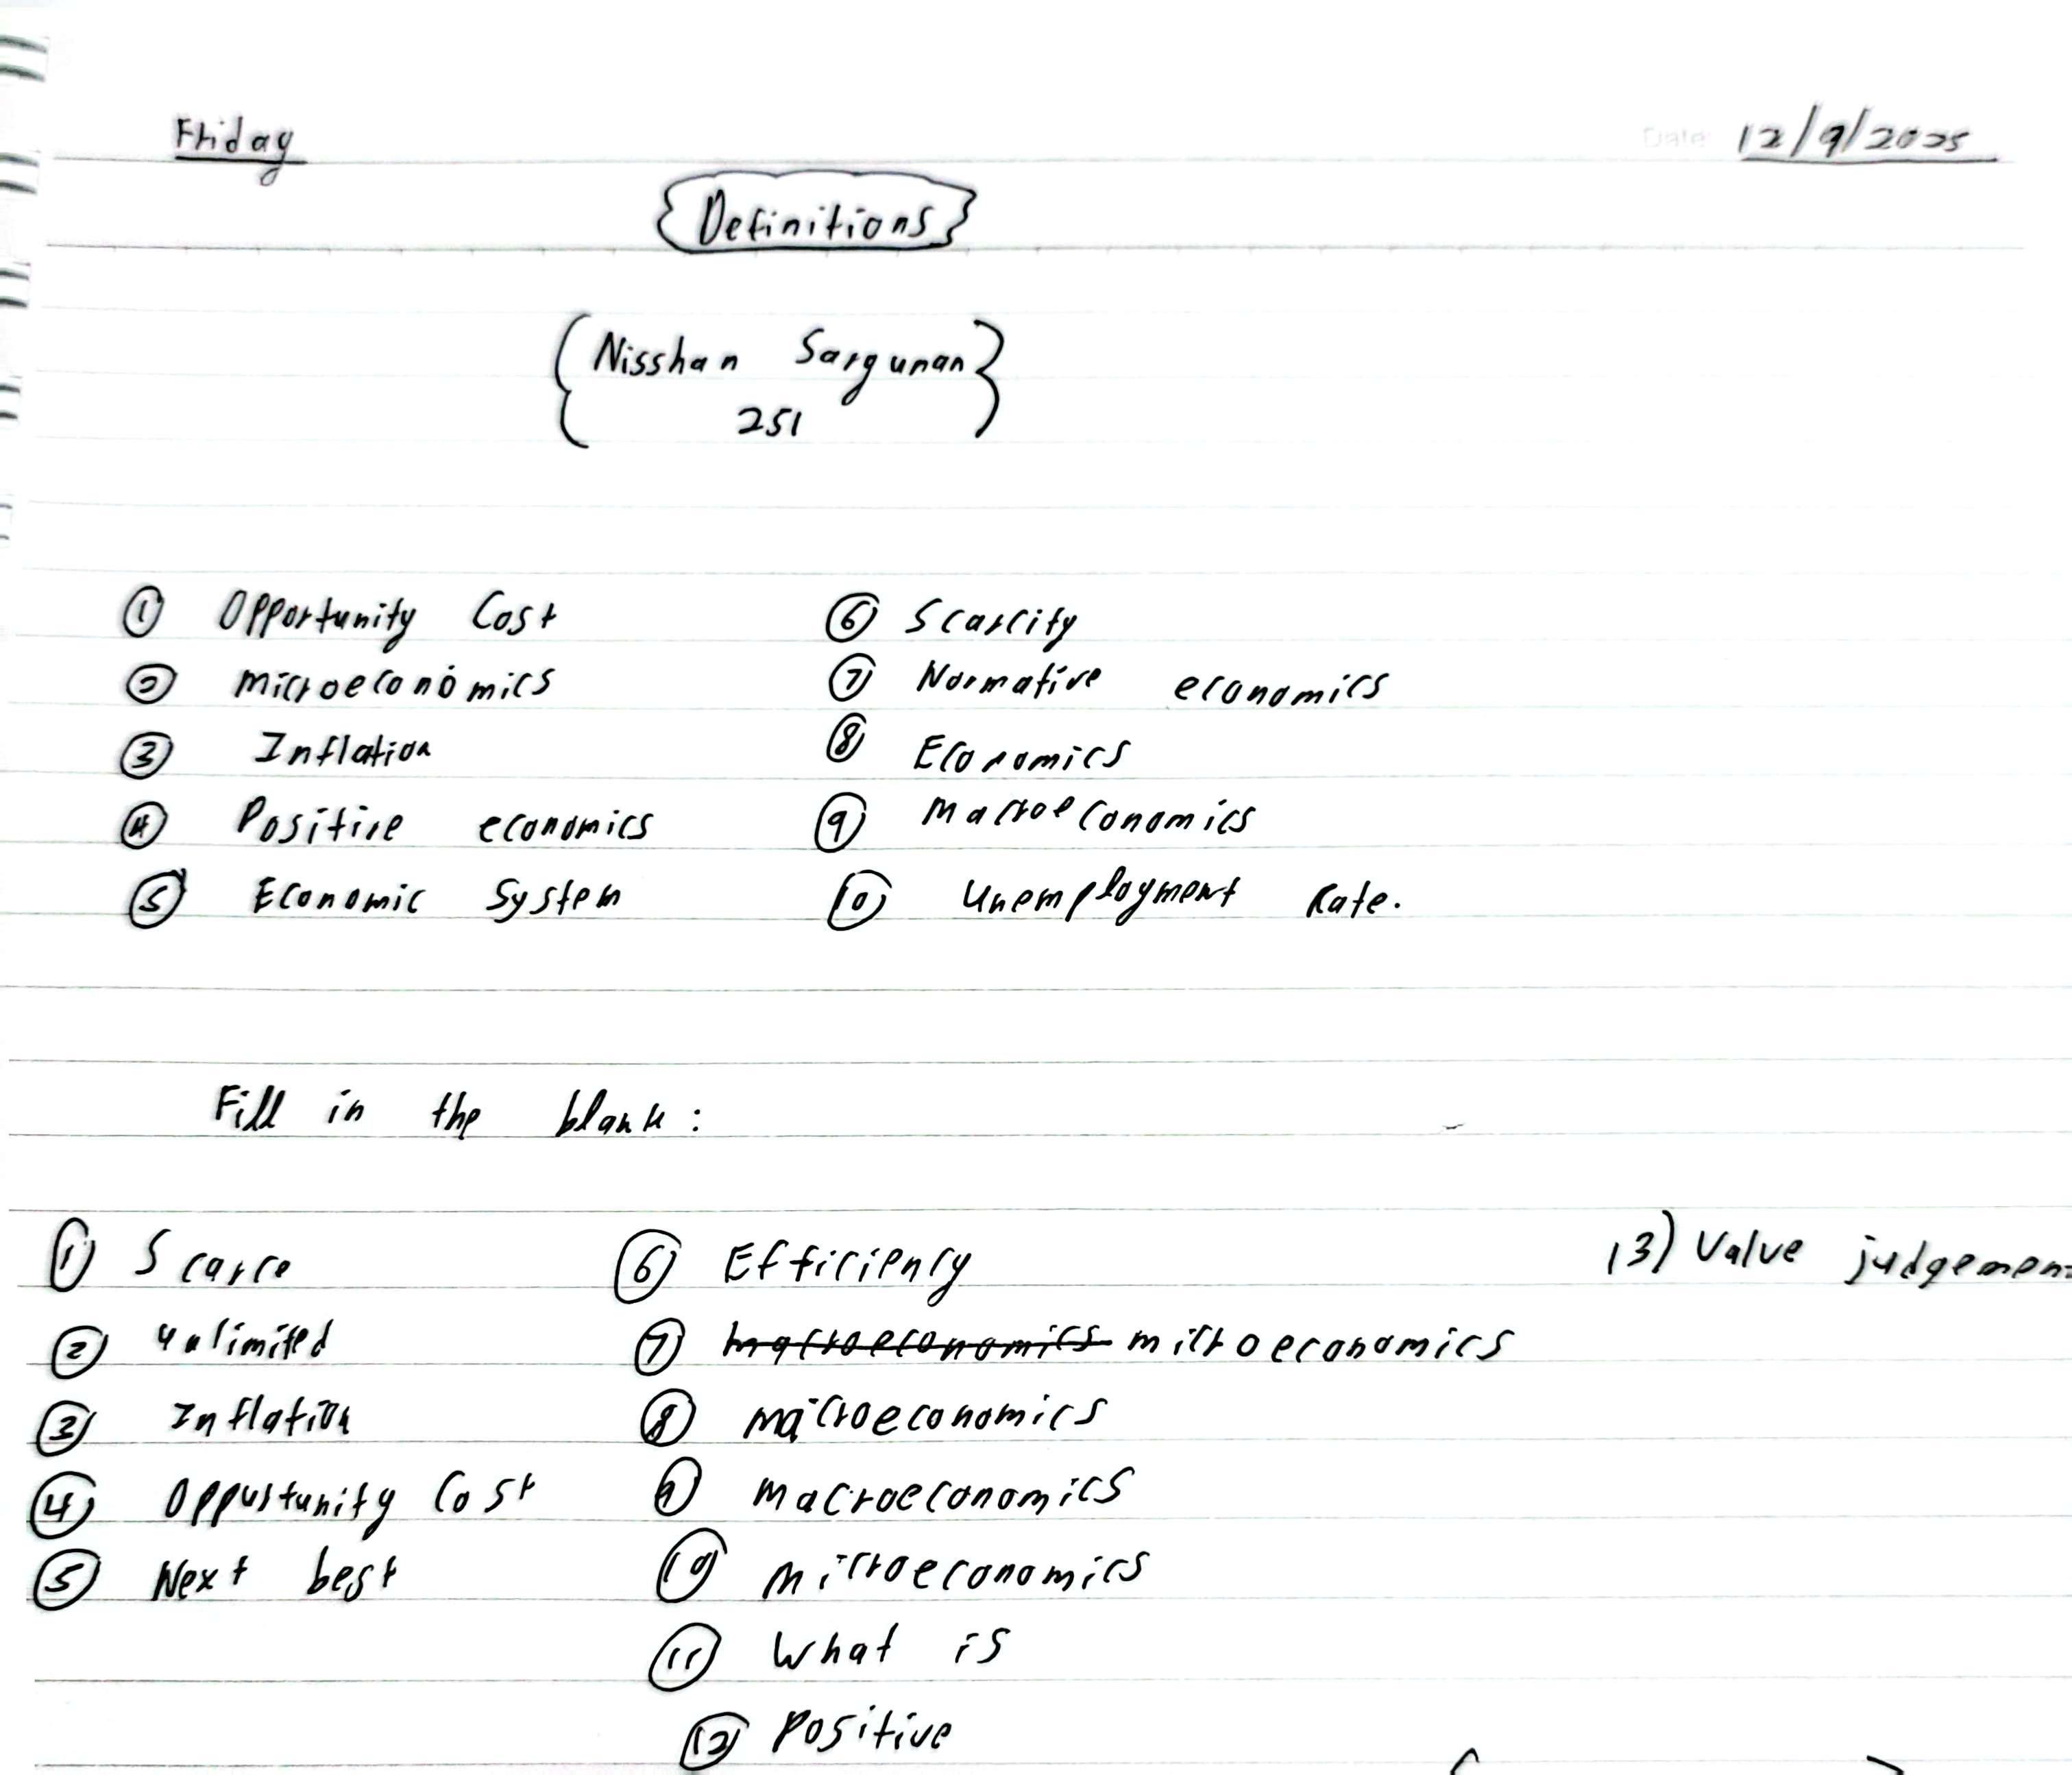 Friday
Date 12/9/2025
Definitions
Nisshan Sargunan
251
① Opportunity Cost
② microeconomics
③ Inflation
④ Positive economics
⑤ Economic System
⑥ Scarcity
⑦ Normative economics
⑧ Economics
⑨ Macroeconomics
⑩ Unemployment Rate.
Fill in the blank:
① Scarce
② unlimited
③ Inflation
④ Oppurtunity Cost
⑤ Next best
⑥ Efficiency
⑦ macroeconomics microeconomics
⑧ macroeconomics
⑨ macroeconomics
⑩ microeconomics
⑪ What is
⑫ Positive
13) Value judgemen